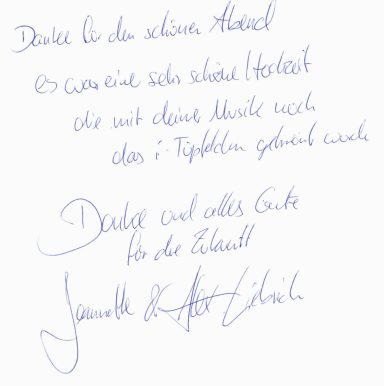 Danke für den schönen Abend
es war eine sehr schöne Hochzeit
die mit deiner Musik noch
das i-Tüpfelchen gekrönt wurde
Danke und alles Gute
für die Zukunft
Jeannette & Alex